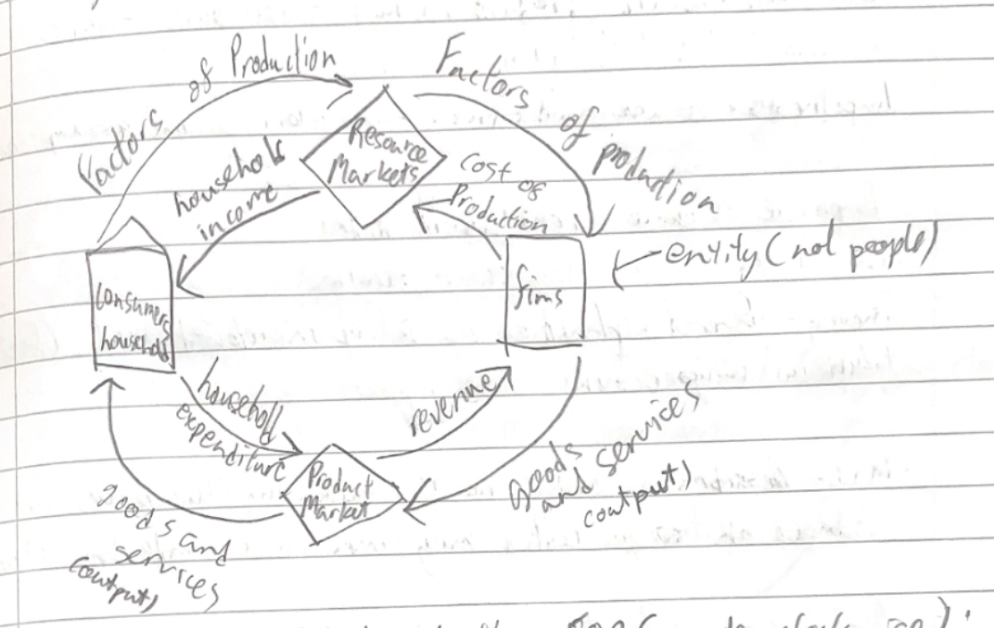 Factors of Production
Factors of production
Resource
Markets
household
income
Cost of
Production
entity (not people)
Consumers
household
fims
household
expenditure
revenue
Product
Market
goods and services
(output)
goods and
services
(output)